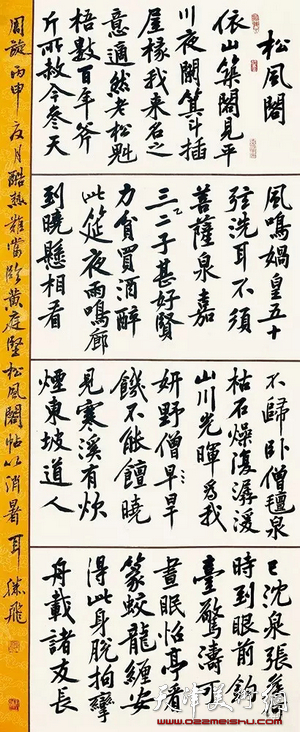 松風閣
依山築閣見平
川夜闌箕斗插
屋椽我來名之
意適然老松魁
梧數百年斧
斤所赦今參天
風鳴媧皇五十
弦洗耳不須
菩薩泉嘉
三二子甚好賢
力貧買酒醉
此筵夜雨鳴廊
到曉懸相看
不歸臥僧氈泉
枯石燥復潺湲
山川光暉為我
妍野僧早旱
饑不能饘曉
見寒溪有炊
煙東坡道人
已沈泉張侯何
時到眼前釣
臺驚濤可
晝眠怡亭看
篆蛟龍纏安
得此身脫拘攣
舟載諸友長
周旋 丙申夏月酷熱難當臨黃庭堅松風閣帖以消暑耳 滕飛
天津美术网
www.022meishu.com